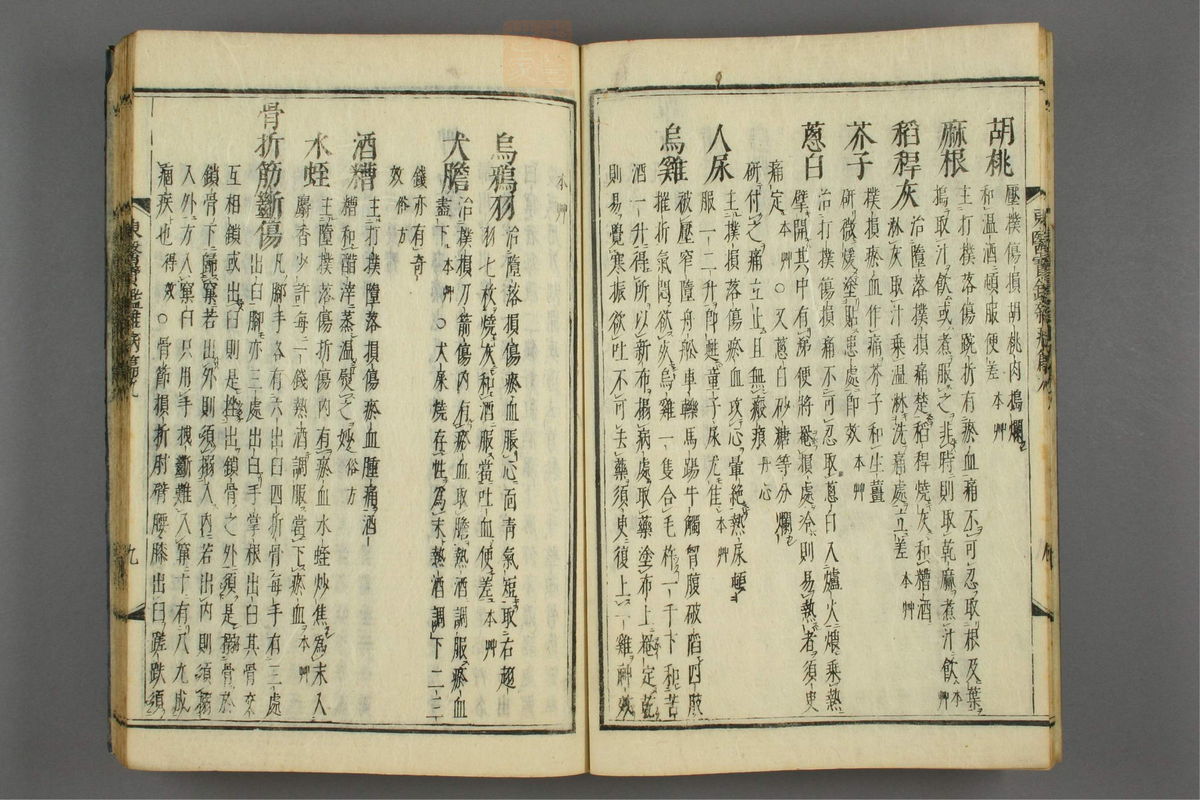 胡桃
壓撲傷損胡桃肉搗爛
和温酒頓服便差 本艸
麻根
主打撲落傷跌折有瘀血痛不可忍取根及葉
搗取汁飮或煮服之非時則取乾麻煮汁飮 本艸
稻稈灰
治墮落撲損痛楚稻稈燒灰和糟酒
淋灰取汁乘温淋洗痛處立差 本艸
芥子
撲損瘀血作痛芥子和生薑
研微煖塗貼患處卽效 本艸
葱白
治打撲傷損痛不可忍取葱白入爐火煨乘熱
擘開其中有涕便將罨損處冷則易熱者須臾
痛定 本艸 ○又葱白砂糖等分爛
研付之痛立止且無瘢痕 丹心
人尿
主撲損落傷瘀血攻心暈絶熱尿頓
服一二升卽甦童子尿尤佳 本艸
烏雞
被壓窄墮舟舩車轢馬踢牛觸胷腹破陷四肢
摧折氣悶欲死烏雞一隻合毛杵一千下和苦
酒一升得所以新布搨病處取藥塗布上裺定乾
則易覺寒振欲吐不可去藥須臾復上一雞神效
本艸
烏鴉羽
治墮落損傷瘀血脹心面靑氣短取右翅
羽七枚燒灰和酒服當吐血便差 本艸
犬膽
治撲損刀箭傷內有瘀血取膽熱酒調服瘀血
盡下 本艸 ○犬屎燒存性爲末熱酒調下二三
錢亦有奇
效 俗方
酒糟
主打撲墮落損傷瘀血腫痛酒
糟和醋滓蒸温熨之妙 俗方
水蛭
主墮撲落傷折傷內有瘀血水蛭炒焦爲末入
麝香少許每一錢熱酒調服當下瘀血 本艸
骨折筋斷傷
凡腳手各有六出臼四折骨每手有三處
出臼腳亦三處出臼手掌根出臼其骨交
互相鎖或出臼則是挫出鎖骨之外須是搦骨於
鎖骨下歸窠若出外則須搦入內若出內則須搦
入外方入窠臼只用手拽斷難入窠十有八九成
痼疾也 得效 ○骨節損折肘臂腰膝出臼蹉跌須
東醫寶鑑雜病篇九
九